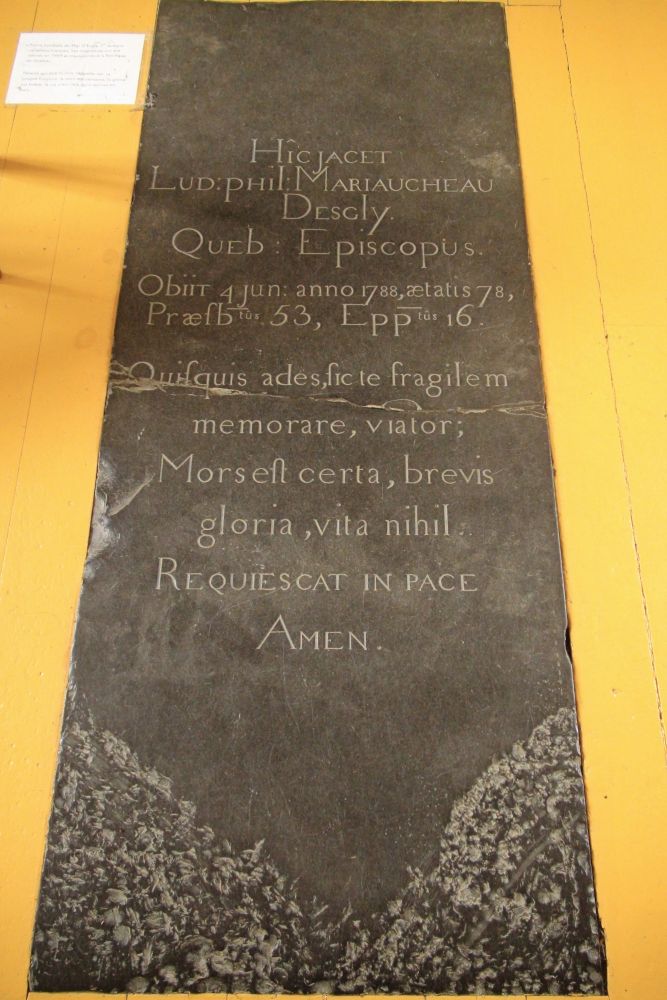 Hîc JACET
LUD: phil: MARIAUCHEAU
DESGLY.
QUEb : EPISCOPUS.
Obiit 4 Jun: anno 1788, ætatis 78,
Præsb tûs. 53, Epp tûs 16.
Quiſquis ades, ſic te fragilem
memorare, viator;
Mors eſt certa, brevis
gloria, vita nihil.
REQUIESCAT IN PACE
AMEN.